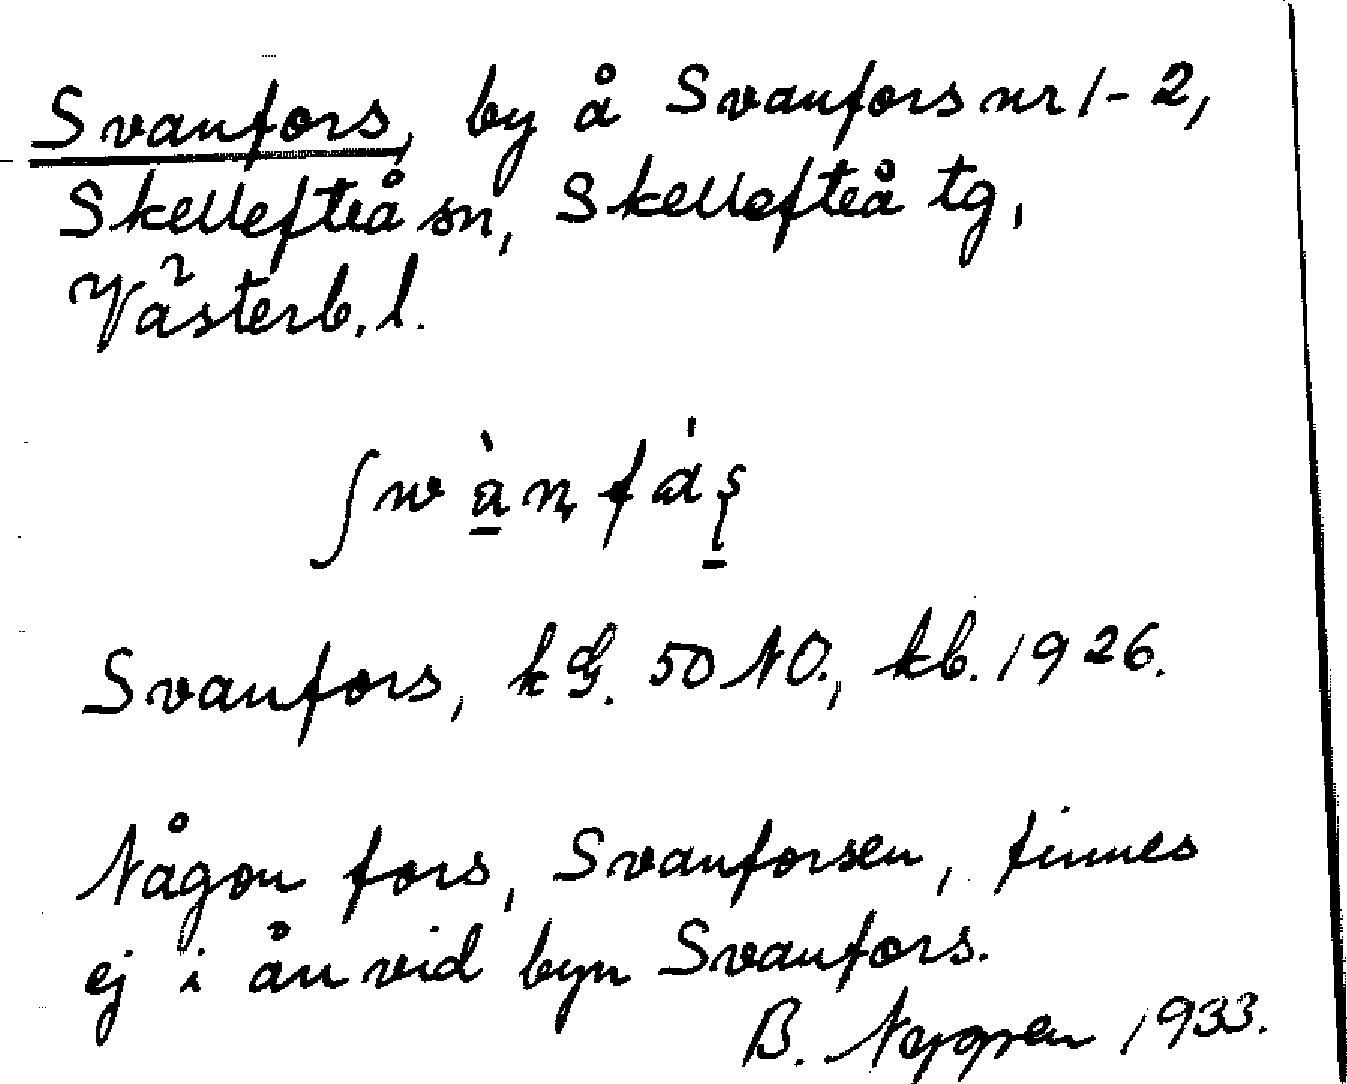 Svanfors, by å Svanfors nr 1-2,
Skellefteå sn, Skellefteå tg,
Västerb. l.
Svanfors, kG. 50 NO., kb. 1926.
Någon fors, Svanforsen, finnes
ej i ån vid byn Svanfors.
B. 1933.